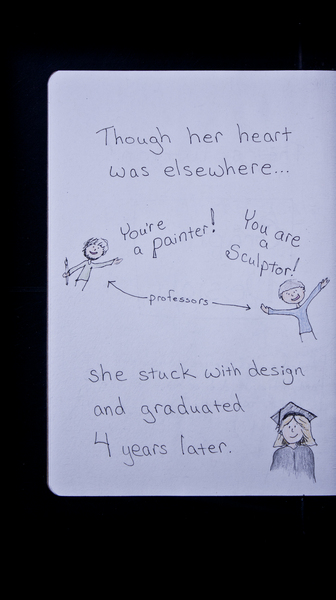 Though her heart
was elsewhere...
You're
a painter!
You are
a
Sculptor!
professors
she stuck with design
and graduated
4 years later.